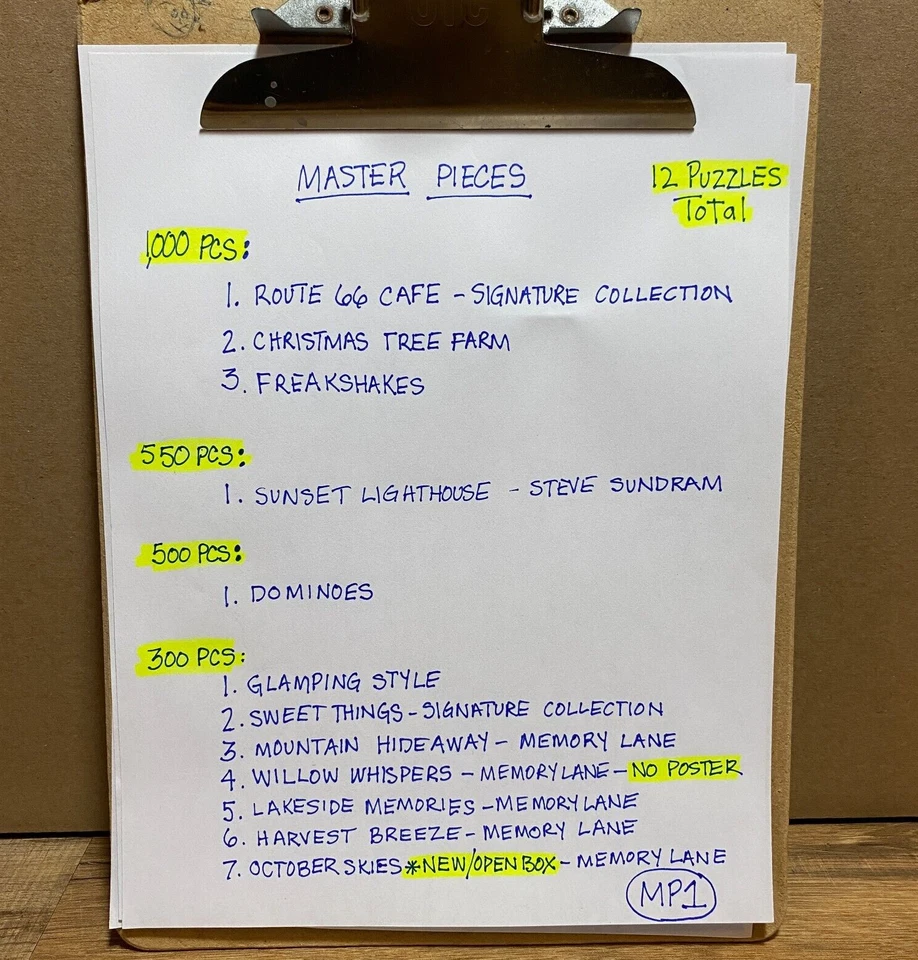 MASTER PIECES
12 PUZZLES
Total
1,000 PCS:
1. ROUTE 66 CAFE - SIGNATURE COLLECTION
2. CHRISTMAS TREE FARM
3. FREAKSHAKES
550 PCS:
1. SUNSET LIGHTHOUSE - STEVE SUNDRAM
500 PCS:
1. DOMINOES
300 PCS:
1. GLAMPING STYLE
2. SWEET THINGS - SIGNATURE COLLECTION
3. MOUNTAIN HIDEAWAY - MEMORY LANE
4. WILLOW WHISPERS - MEMORY LANE - NO POSTER
5. LAKESIDE MEMORIES - MEMORY LANE
6. HARVEST BREEZE - MEMORY LANE
7. OCTOBER SKIES *NEW/OPEN BOX - MEMORY LANE
MP1